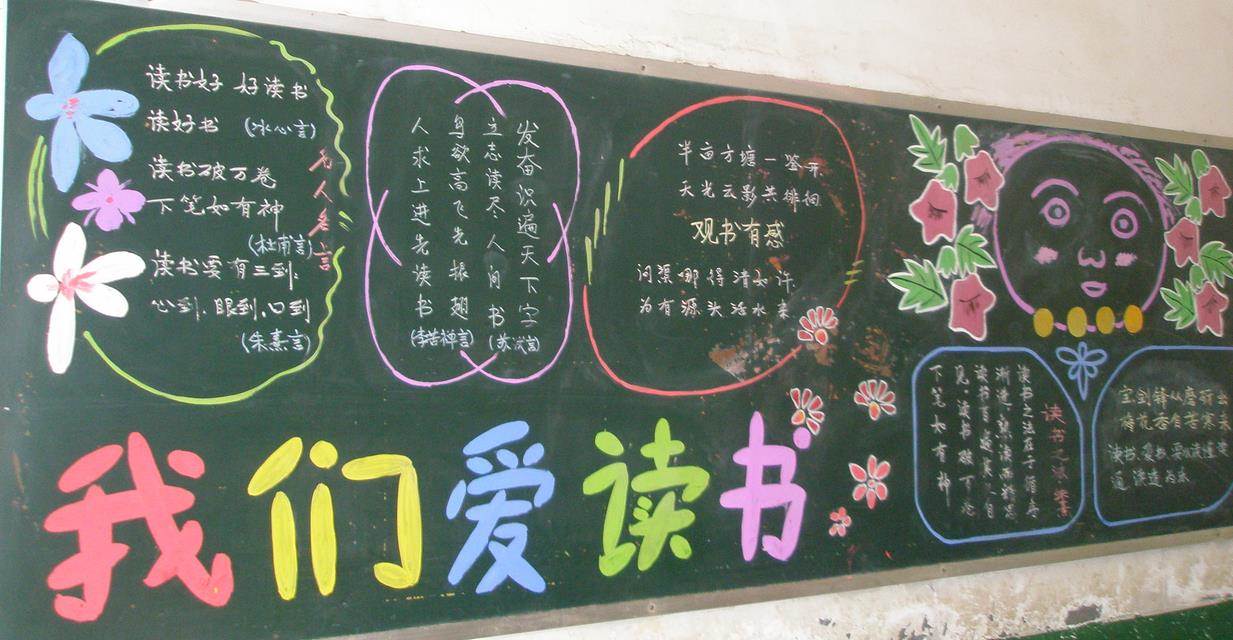 读书好 好读书
读好书 (冰心言)
读书破万卷
下笔如有神
(杜甫言)
读书要有三到:
心到.眼到.口到
(朱熹言)
名人名言
发奋识遍天下字
立志读尽人间书
(苏轼言)
鸟欲高飞先振翅
人求上进先读书
(李苦禅言)
半亩方塘一鉴开
天光云影共徘徊
观书有感
问渠哪得清如许
为有源头活水来
我们爱读书
读书之法 朱熹
读书之法在于循序
渐进,熟读而精思
读书百遍其义自
见读书破万卷
下笔如有神
宝剑锋从磨砺出
梅花香自苦寒来
读书.爱书.